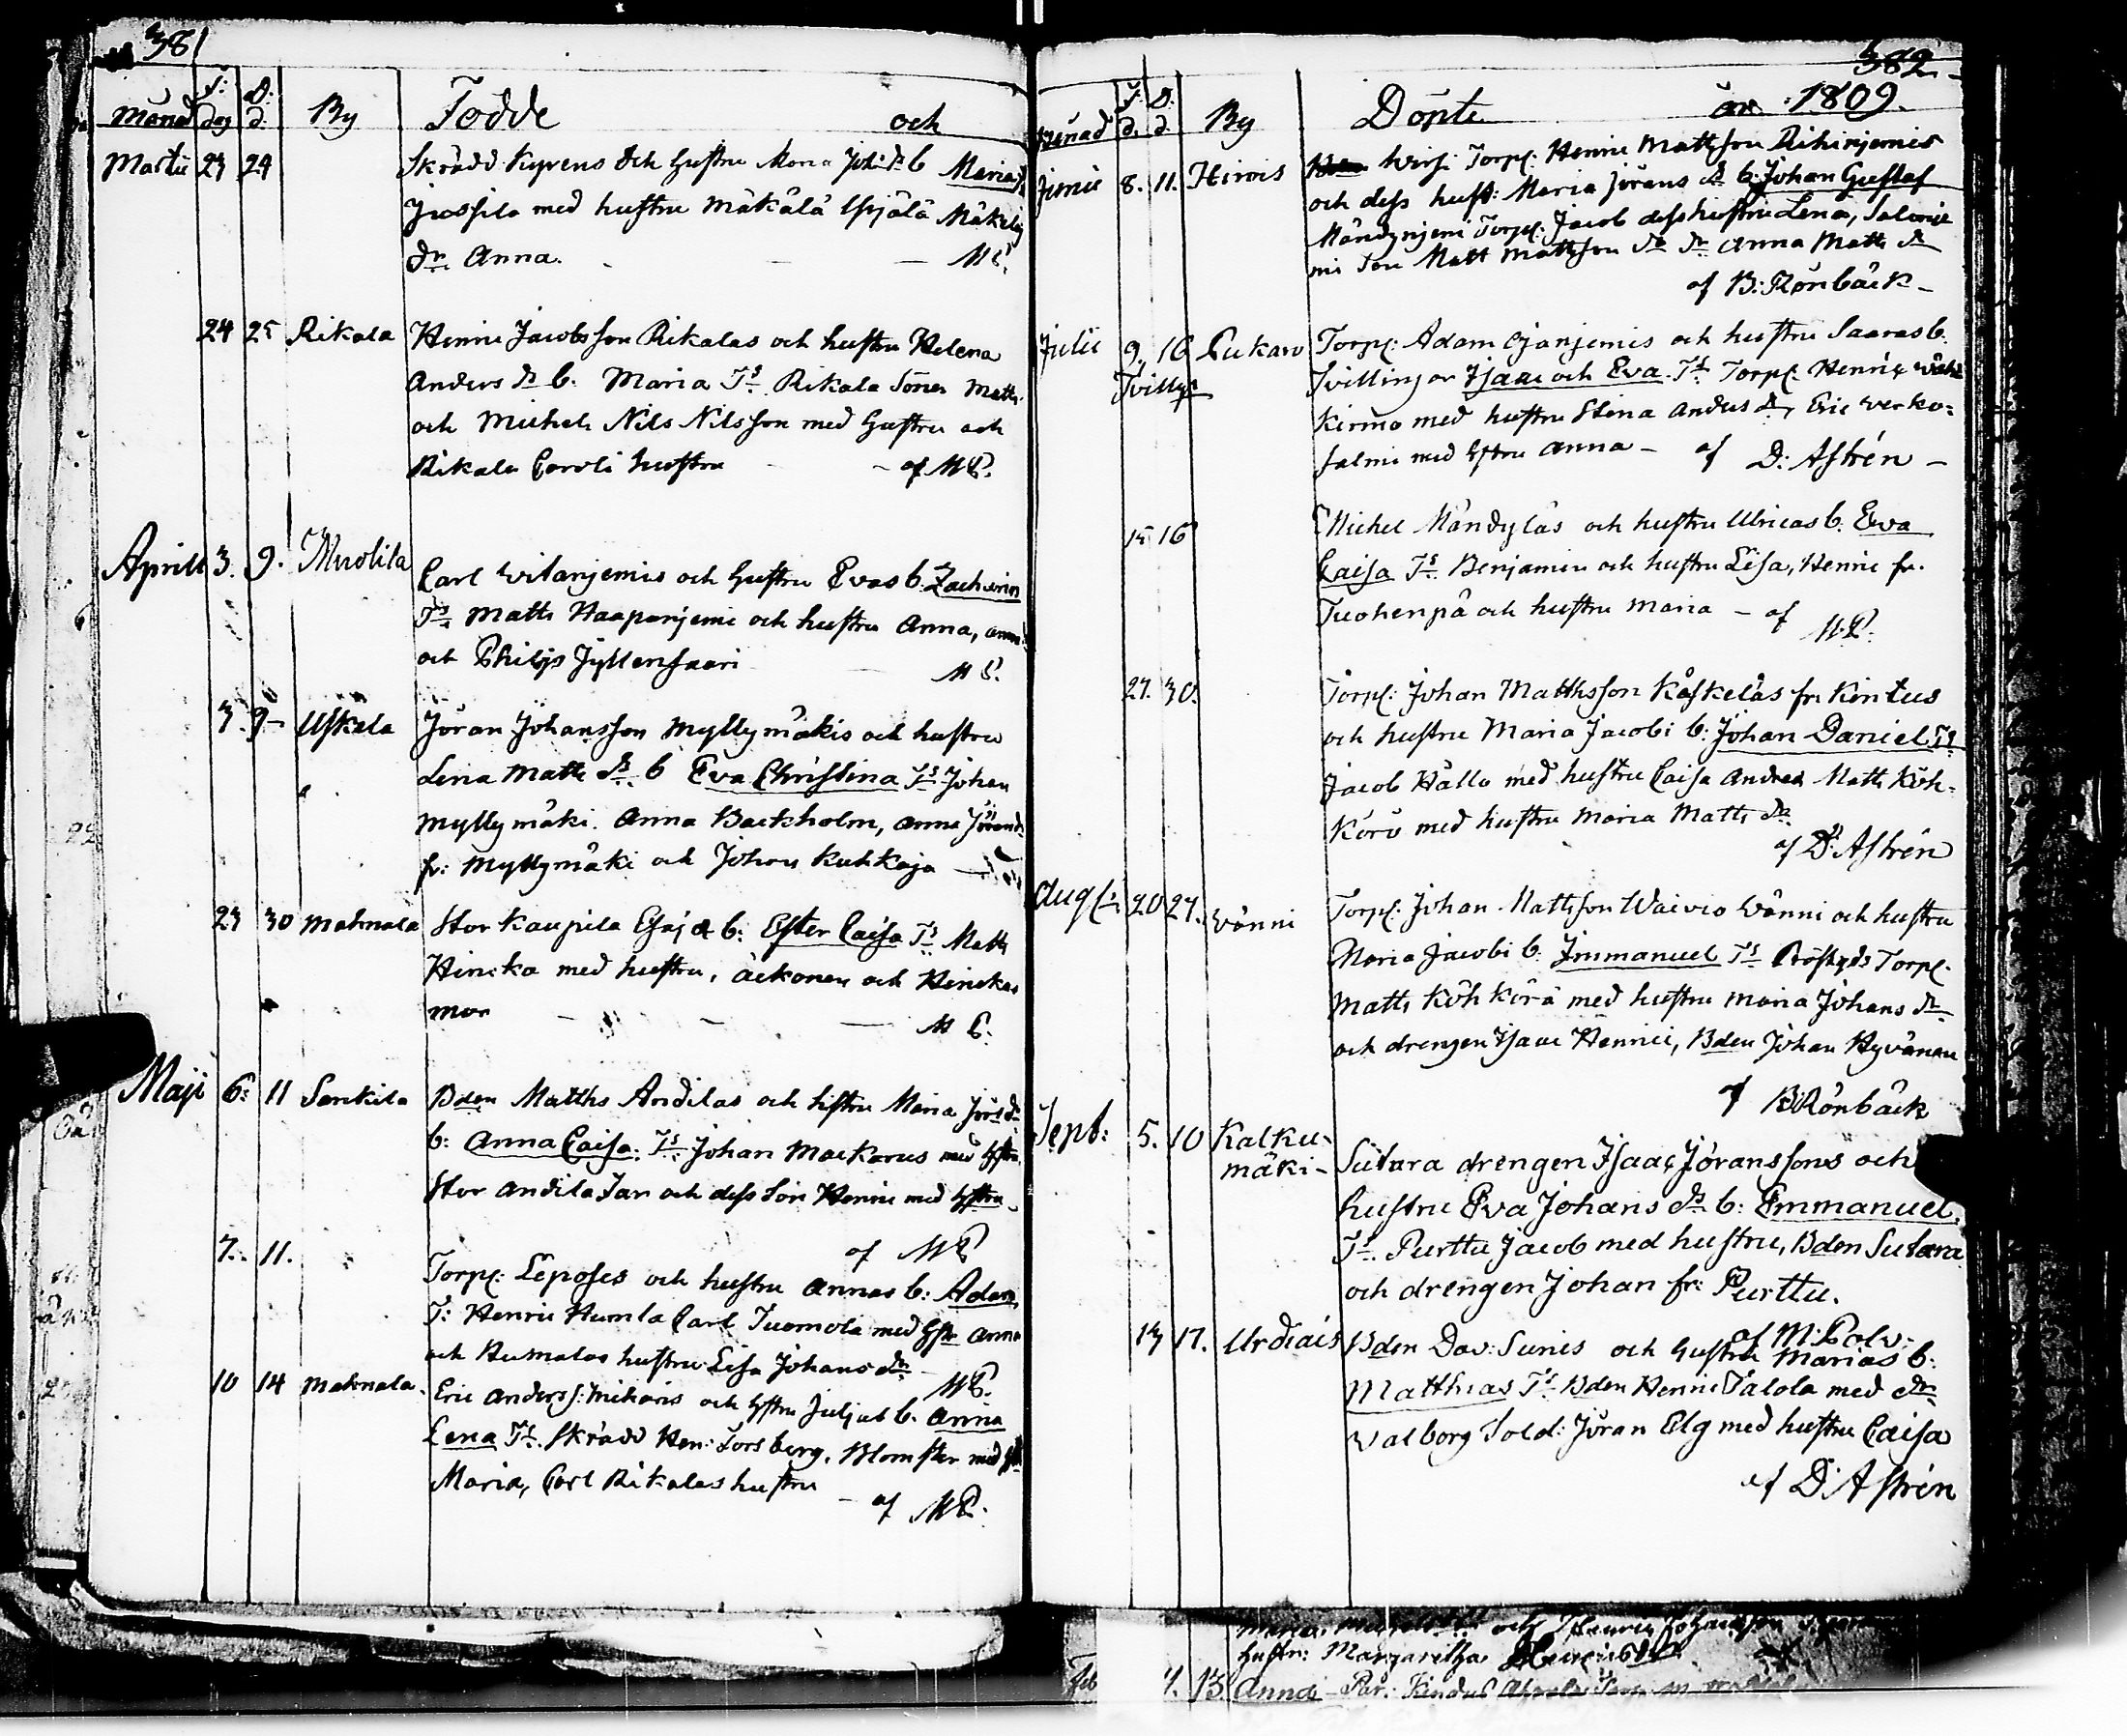 381
Månad F: dag D: d. By Födde och
Martii 23 24 Skrädd Kyrens och hustru Maria Joh: dr b Maria
Jussila med hustru Mäkälä Mäkelä
dr. Anna. M P.
24 25 Rikala Henric Jacobsson Rikalas och hustru Helena
Anders dr b: Maria Ts Rikala Sönen Matts
och Michel, Nils Nilsson med hustru och
Rikala Caroli hustru - af MP.
Aprill 3. 9. Muolila Carl Witanjemis och hustru Evas b. Zacharias
Ts Matts Haapanjemi och hustru Anna,
och Philip Jyllensaari M P.
3. 9 Uskela Jöran Johansson Myllymäkis och hustru
Lena Matts dr b Eva Christina Ts Johan
Myllymäki. Anna Backholm, Anna Jörans
fr: Myllymäki och Johan Kuhkoja
23 30 Mahnala Stor Kaupila b: Ester Caisa Ts Matts
Hinska med hustru, och Hinskas
mor M P.
Maji 6: 11 Sankila Bden Matths Andilas och hstru Maria Jörs dr
b: Anna Caisa: Ts Johan Mackarus med hstru
Stor Andila Jan och dess Son Henric med hstru
af MP
7. 11. Torp: Leposes och hustru Annas b: Adam
T: Henric Humla Carl Tuomola med hstr Anna
och Humalas hustru Lisa Johans dr MP.
10 14 Mahnala. Eric Anderss: och hstru b. Anna
Lena Ts. Skrädd Hen: Forsberg, Blomster med
Maria, Carl Rikalas hustru - af MP.
382
Månad F: d. D: d. By Döpte år 1809.
Junii 8. 11. Hirvis Torp: Henric Mattsson Rihinjemis
och dess hust: Maria Jörans dr b: Johan Gustaf
Mändynjemi Torp: Jacob dess hustru Lena,
mi Son Matt Mattsson Anna Matts dr
af B: Rönbäck -
Julii 9. 16 Pukaro Torp: Adam Ojanjemis och hustru Saaras b.
Tvilly: Tvillingar Isaac och Eva. Ts Torp: Henric
Kirmo med hustru Stina Anders dr, Eric Verko-
salmi med hstru Anna - af D: Astrén -
15 16 Michel Mändyläs och hustru Ulricas b. Eva
Caisa Ts Benjamin och hustru Lisa, Henric fr.
Tuohenpä och hustru Maria - af M.P.
27. 30. Torp: Johan Matthsson Koskeläs fr. Kintus
och hustru Maria Jacobi b: Johan Daniel Ts
Jacob Hällö med hustru Caisa Andrea Matts Köh-
körö med hustru Maria Matts dr
af D: Astrén
Aug: 20 27. Vänni Torp: Johan Mattsson Waivio Vänni och hustru
Maria Jacobi b. Immanuel Ts Torp.
Matts Köhkörä med hustru Maria Johans dr
och drengen Isaac Henrici, Bden Johan Hyvänen
af B Rönbäck
Sept: 5. 10 Kalku-
mäki - Sutara drengen Isaac Jöranssons och
hustru Eva Johans dr b: Emmanuel.
Ts. Purttu Jacob med hustru, Bden Sutara
och drengen Johan fr: Purttu.
af M: Polv:
13 17. Urdiais Bden Dav: Sunis och hustru Marias b:
Matthias Ts Bden Henric Palola med dr
Valborg Sold: Jöran Elg med hustru Caisa
af D: Astrén
hustru: Margaretha
Feb 13 Anna